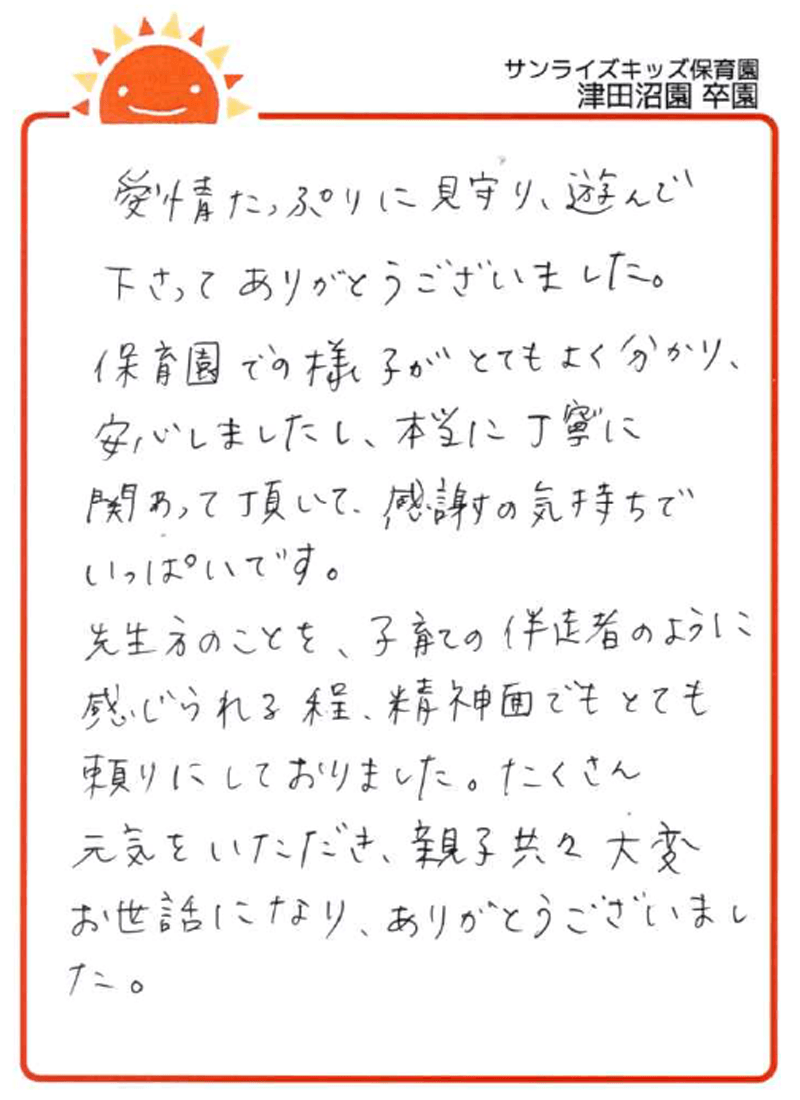 サンライズキッズ保育園
津田沼園 卒園
愛情たっぷりに見守り、遊んで
下さってありがとうございました。
保育園での様子がとてもよく分かり、
安心しましたし、本当に丁寧に
関わって頂いて、感謝の気持ちで
いっぱいです。
先生方のことを、子育ての伴走者のように
感じられる程、精神面でもとても
頼りにしておりました。たくさん
元気をいただき、親子共々大変
お世話になり、ありがとうございまし
た。